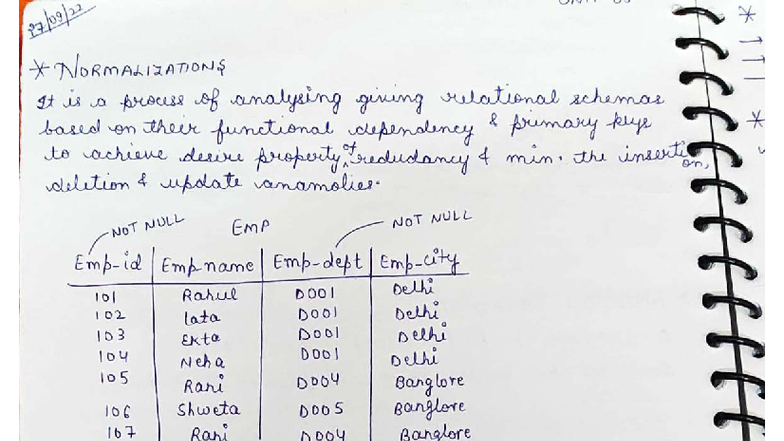 27/09/22
* NORMALIZATIONS
It is a process of analysing giving relational schemas
based on their functional dependency & primary keys
to achieve desire property of redudancy & min. the insertion,
deletion & update anamolies.
NOT NULL EMP NOT NULL
Emp-id Emp name Emp-dept Emp-city
101 Rahul D001 Delhi
102 lata D001 Delhi
103 Ekta D001 Delhi
104 Neha D001 Delhi
105 Rani D004 Banglore
106 Shweta D005 Banglore
107 Rani D004 Banglore